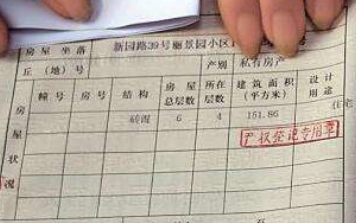 房屋坐落 新园路39号丽景园小区
丘（地）号 产别 私有房产
幢号 房号 结构 房屋总层数 所在层数 建筑面积（平方米） 设计用途
房屋状况
砖混 6 4 151.86 住宅
产权登记专用章